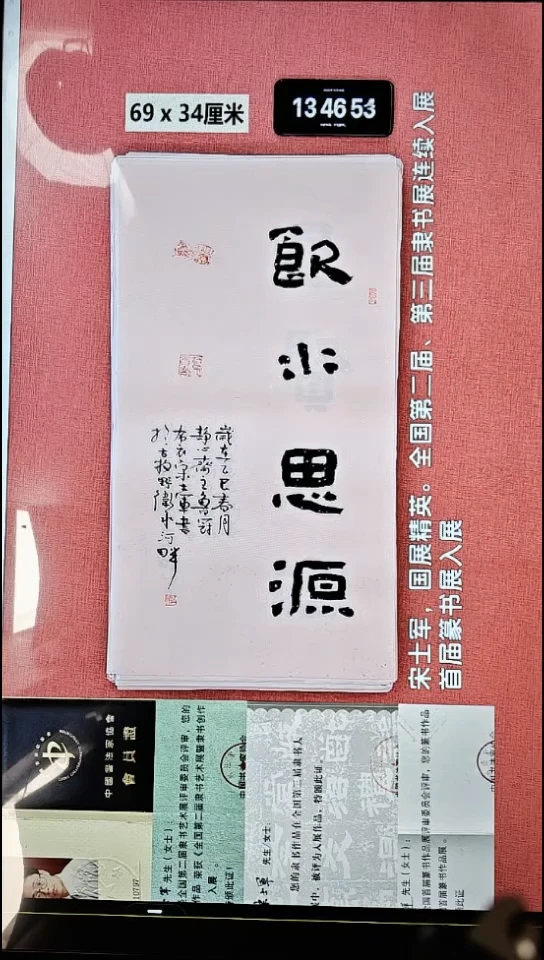 69 x 34厘米
13 46 53
飲水思源
歲在乙巳春月
布衣宋士軍書
宋士军，国展精英。全国第二届、第三届隶书展连续入展
首届篆书展入展
中國書法家協會
會員證
先生（女士）
全国第二届隶书艺术展评审委员会评审，您的
作品 荣获《全国第二届隶书艺术展暨隶书创作
入展。
颁此证！
宋士军 先生（女士）：
您的隶书作品在全国第二届隶书人
展中，被评为入展作品，特颁此证。
先生（女士）：
国首届篆书作品展评审委员会评审，您的篆书作品
首届篆书作品展。
颁此证